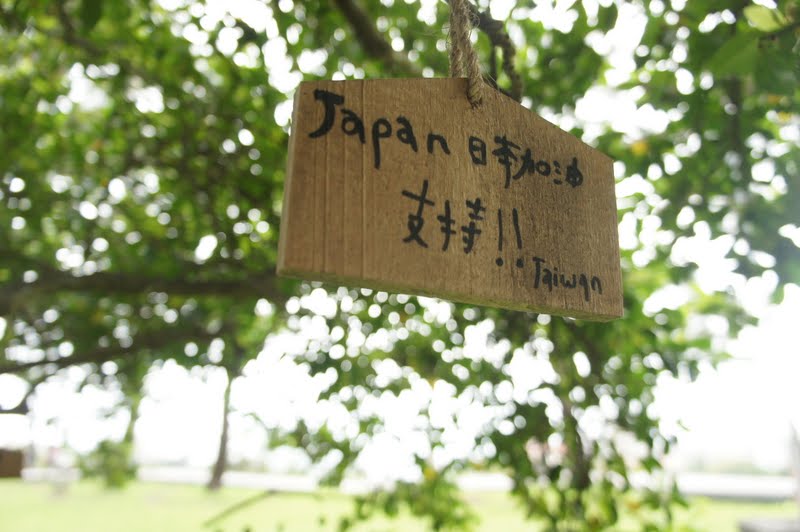 Japan 日本加油
支持!!
Taiwan